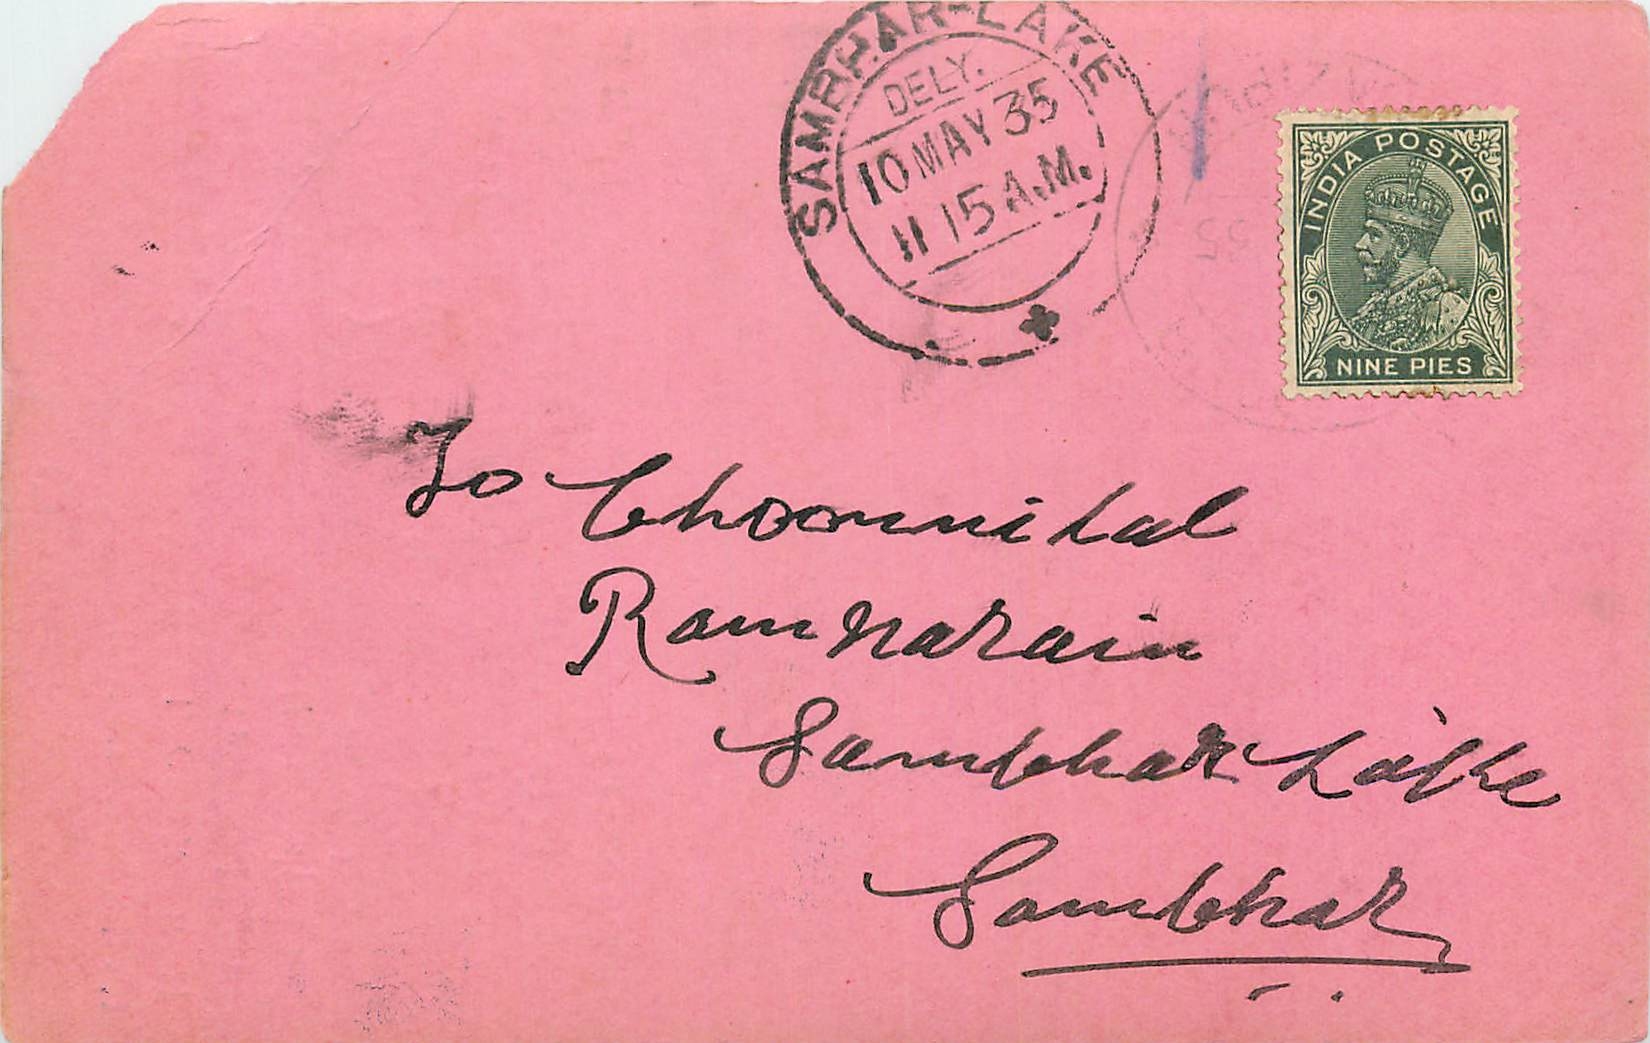 SAMBHAR-LAKE
DELY.
10 MAY 35
11 15 A.M.
35
INDIA POSTAGE
NINE PIES
To Choonnilal
Ramnarain
Sambhar Lake
Sambhar